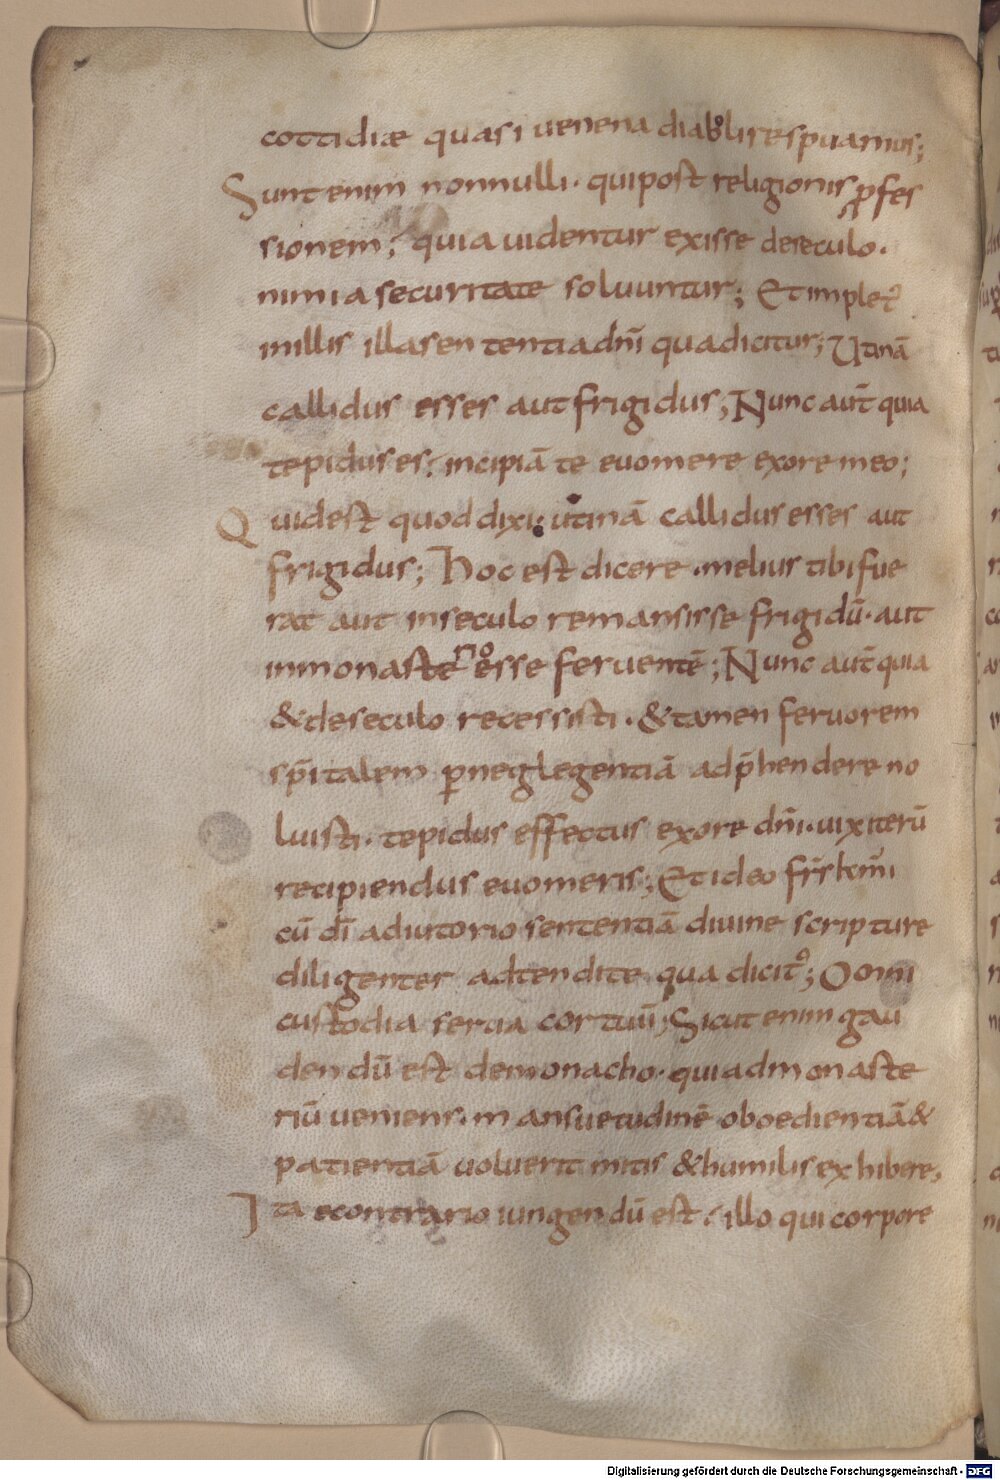 cottidiae quasi uenena diaboli respuamus;
Sunt enim nonnulli· qui post religionis ꝓfes
sionem; quia uidentur exisse deseculo·
nimia securitate soluuntur; Et impletꝰ
inillis illa sententia dn̄i qua dicitur; Utinā
callidus esses aut frigidus; Nunc aut̄ quia
tepidus es; incipiā te euomere exore meo;
Quid est quod dixi; utinā callidus esses aut
frigidus; Hoc est dicere· melius tibi fue
rat aut inseculo remansisse frigidū· aut
inmonasterio esse feruentē; Nunc aut̄ quia
& deseculo recessisti· & tamen feruorem
sp̄italem ꝑ neglegentiā adp̄hendere no
luisti· tepidus effectus exore dn̄i· uix iterū
recipiendus euomeris; Et ideo fr̄s km̄i
cū dī adiutorio sententiā diuine scripture
diligenter adtendite qua dicitꝰ; Omni
custodia serua cor tuū; Sicut enim gau
dendū est demonacho· qui admonaste
riū ueniens· mansuetudinē oboedientiā &
patientiā uoluerit mitis & humilis exhibere;
Ita econtrario iungendū est; illo qui corpore
Digitalisierung gefördert durch die Deutsche Forschungsgemeinschaft - DFG